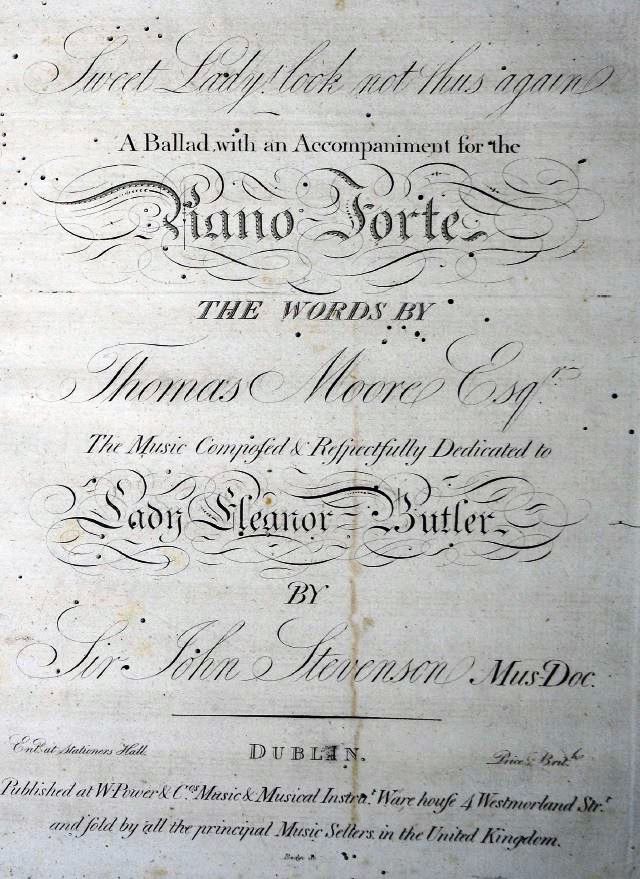 Sweet Lady! look not thus again
A Ballad, with an Accompaniment for the
Piano Forte
THE WORDS BY
Thomas Moore Esqr.
The Music Compoſed & Reſpectfully Dedicated to
Lady Eleanor Butler.
BY
Sir John Stevenson Mus-Doc.
DUBLIN.
Entd. at Stationers Hall.
Price Brit.
Published at W. Power & Cos. Music & Musical Instrut. Ware houſe 4 Westmorland Strt.
and ſold by all the principal Music Sellers in the United Kingdom.